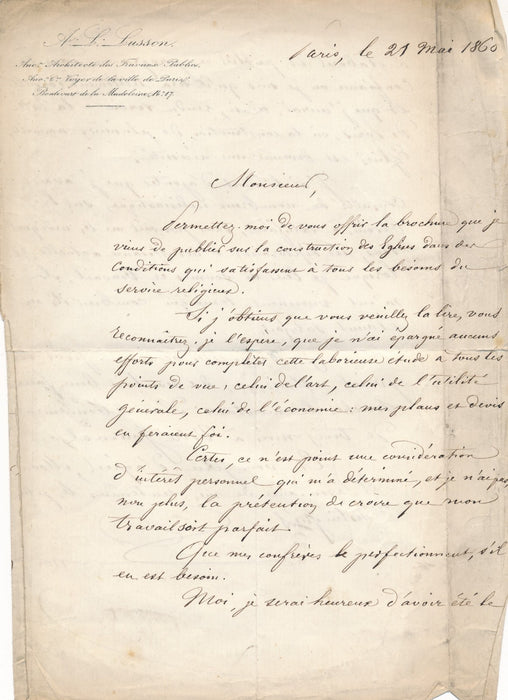 A. L. Lusson.
Anc.ⁿ Architecte des Travaux Publics,
Anc.ⁿ C.re Voyer de la ville de Paris,
Boulevart de la Madeleine, N.º 17.
Paris, le 21 Mai 1860
Monsieur,
Permettez-moi de vous offrir la brochure que je
viens de publier sur la construction des Eglises dans des
Conditions qui satisfassent à tous les besoins du
service religieux.
Si j'obtiens que vous veuillez la lire, vous
reconnaîtrez, je l'espère, que je n'ai épargné aucuns
efforts pour compléter cette laborieuse étude à tous les
points de vue; celui de l'art, celui de l'utilité
générale, celui de l'économie: mes plans et devis
en feraient foi.
Certes, ce n'est point une considération
d'intérêt personnel qui m'a déterminé, et je n'ai pas,
non plus, la prétention de croire que mon
travail soit parfait.
Que mes confrères le perfectionnent, s'il
en est besoin.
Moi, je serai heureux d'avoir été le